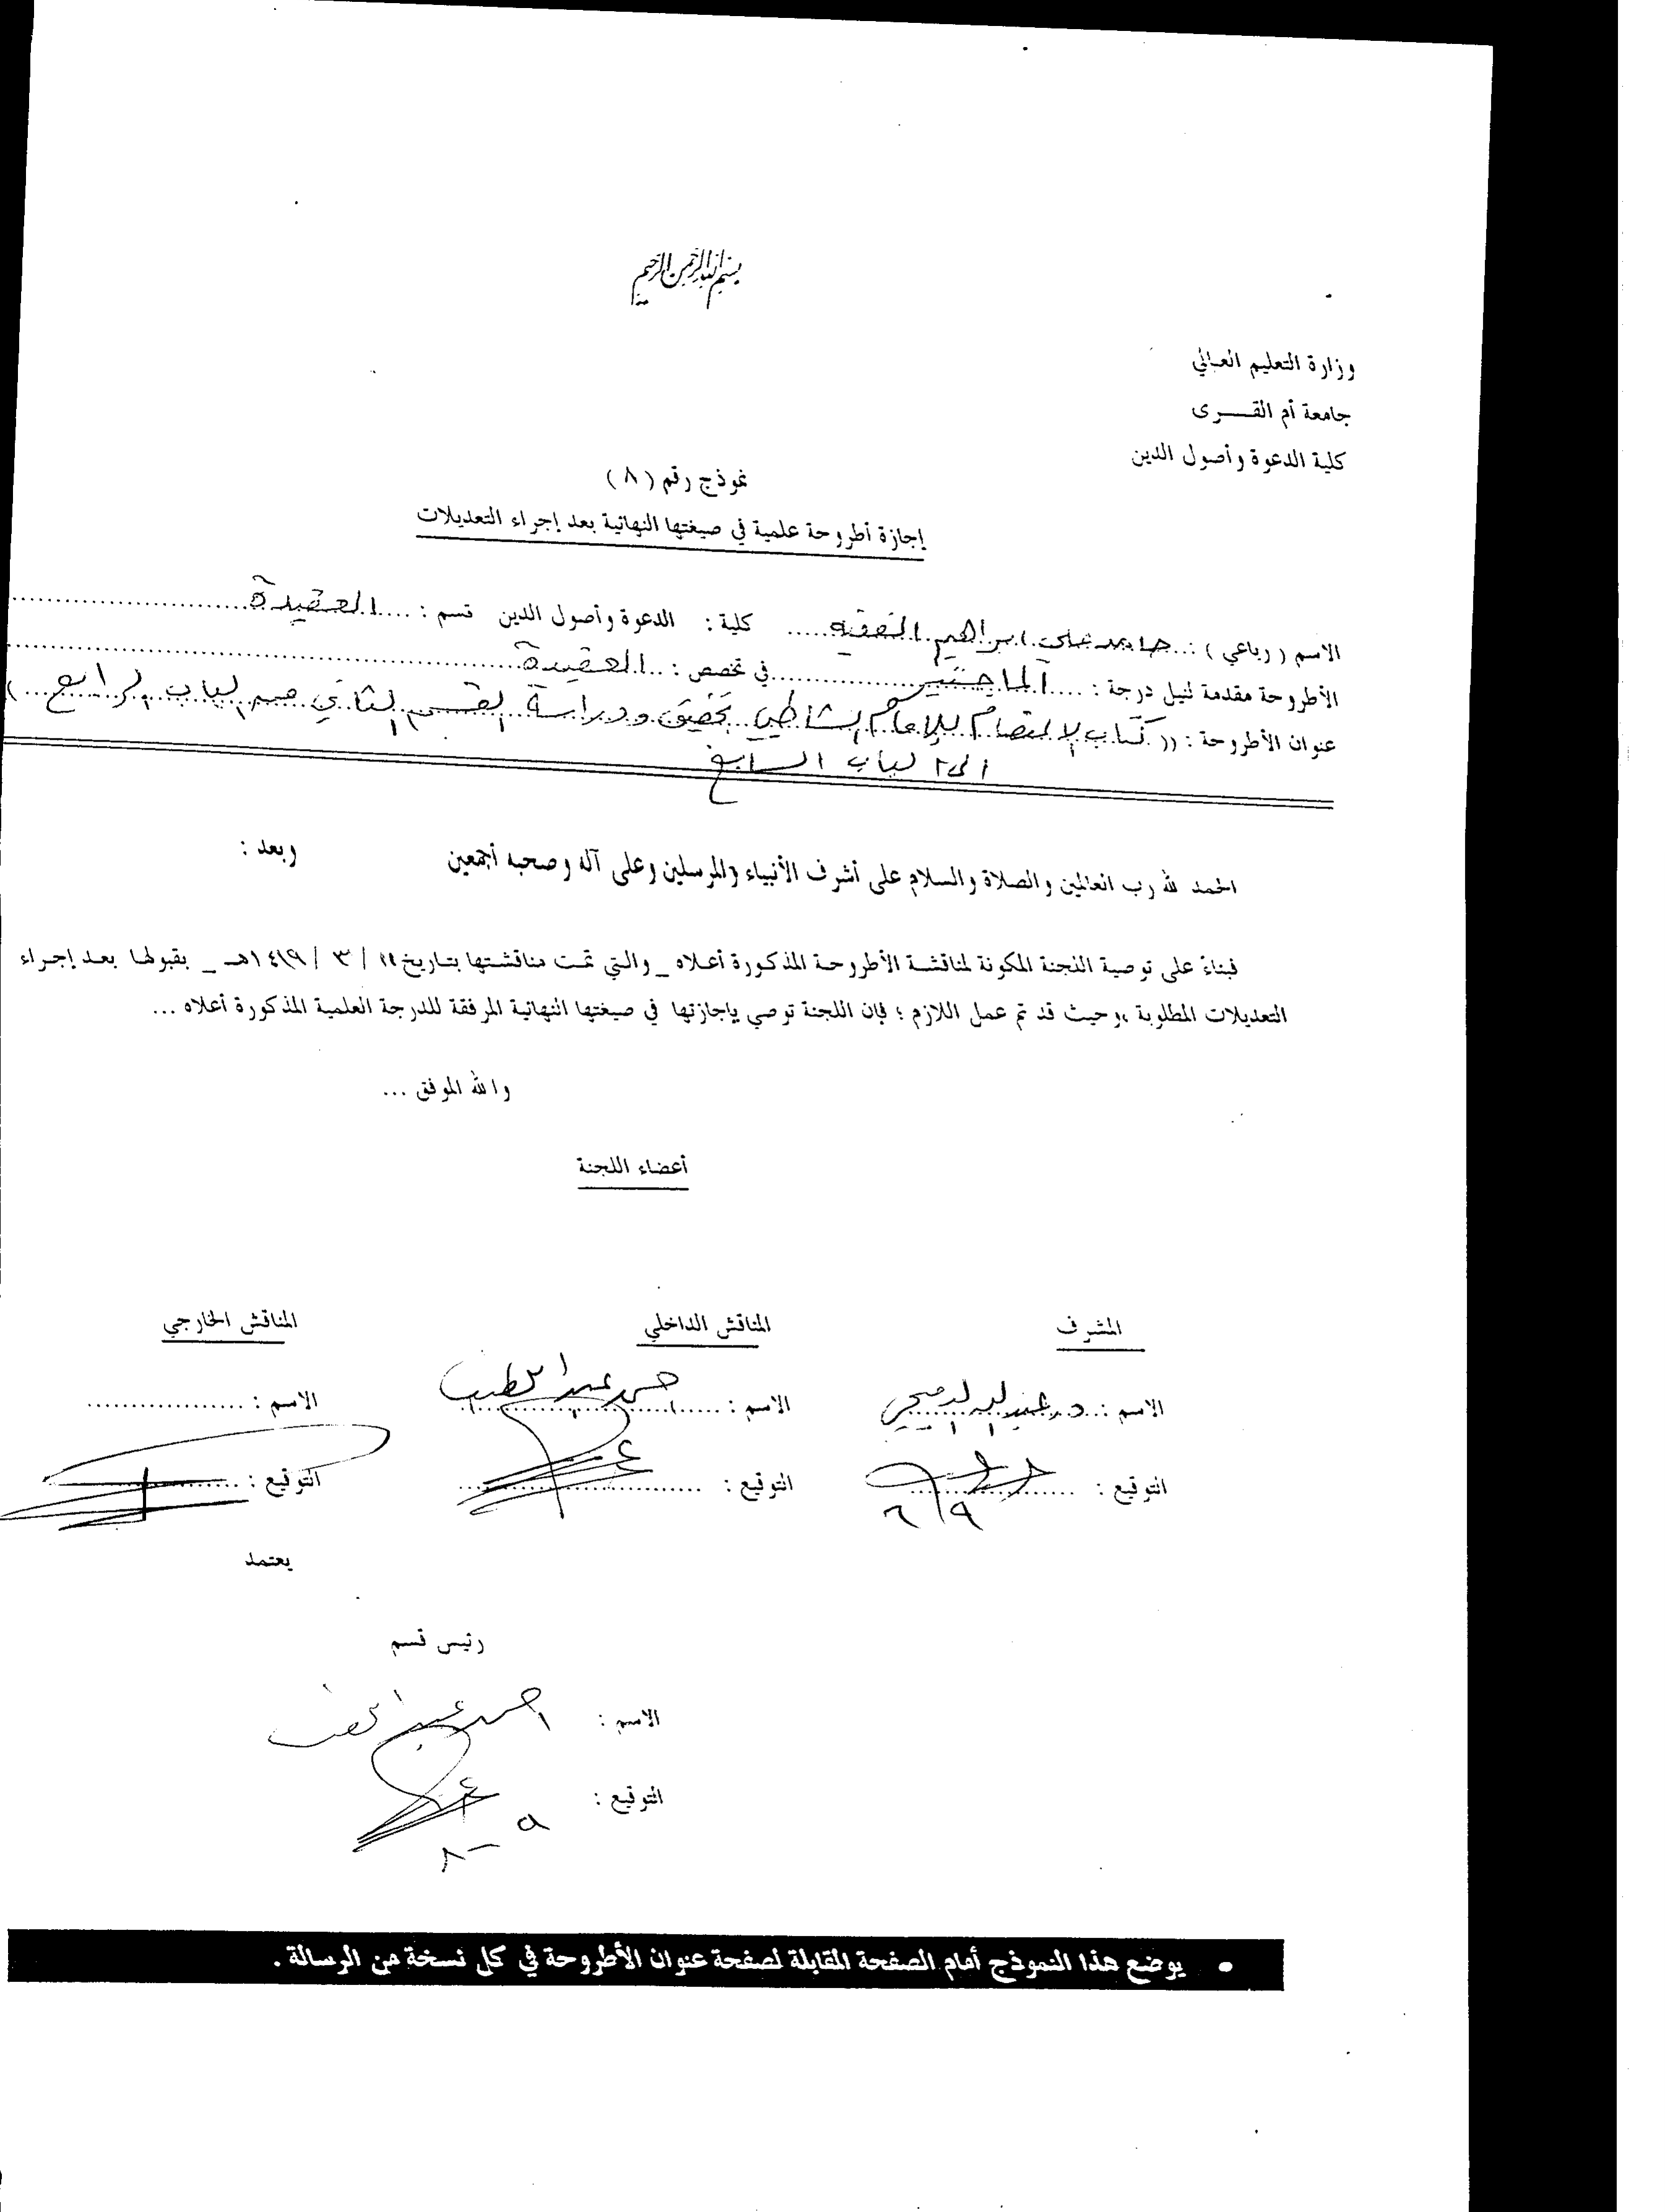 بسم الله الرحمن الرحيم
وزارة التعليم العالي
جامعة أم القـــرى
كلية الدعوة وأصول الدين
نموذج رقم ( ٨ )
إجازة أطروحة علمية في صيغتها النهائية بعد إجراء التعديلات
الاسم ( رباعي ) : حامد علي ابراهيم الفقيه كلية : الدعوة وأصول الدين قسم : العقيدة
الأطروحة مقدمة لنيل درجة : الماجستير في تخصص : العقيدة
عنوان الأطروحة : (( كتاب الاعتصام للإمام الشاطبي تحقيق ودراسة القسم الثاني من الباب الرابع
الى الباب السابع
الحمد لله رب العالمين والصلاة والسلام على أشرف الأنبياء والمرسلين وعلى آله وصحبه أجمعين وبعد :
فبناءً على توصية اللجنة المكونة لمناقشة الأطروحة المذكورة أعلاه _ والتي تمت مناقشتها بتاريخ / ٣ / ١٤١٩هـ _ بقبولها بعد إجراء
التعديلات المطلوبة ،وحيث قد تم عمل اللازم ؛ فإن اللجنة توصي بإجازتها في صيغتها النهائية المرفقة للدرجة العلمية المذكورة أعلاه ...
والله الموفق ...
أعضاء اللجنة
المشرف المناقش الداخلي المناقش الخارجي
الاسم : د. عبدالله الدميجي الاسم : احمد عبداللطيف الاسم :
التوقيع : التوقيع : التوقيع :
يعتمد
رئيس قسم
الاسم : احمد عبداللطيف
التوقيع :
• يوضع هذا النموذج أمام الصفحة المقابلة لصفحة عنوان الأطروحة في كل نسخة من الرسالة .